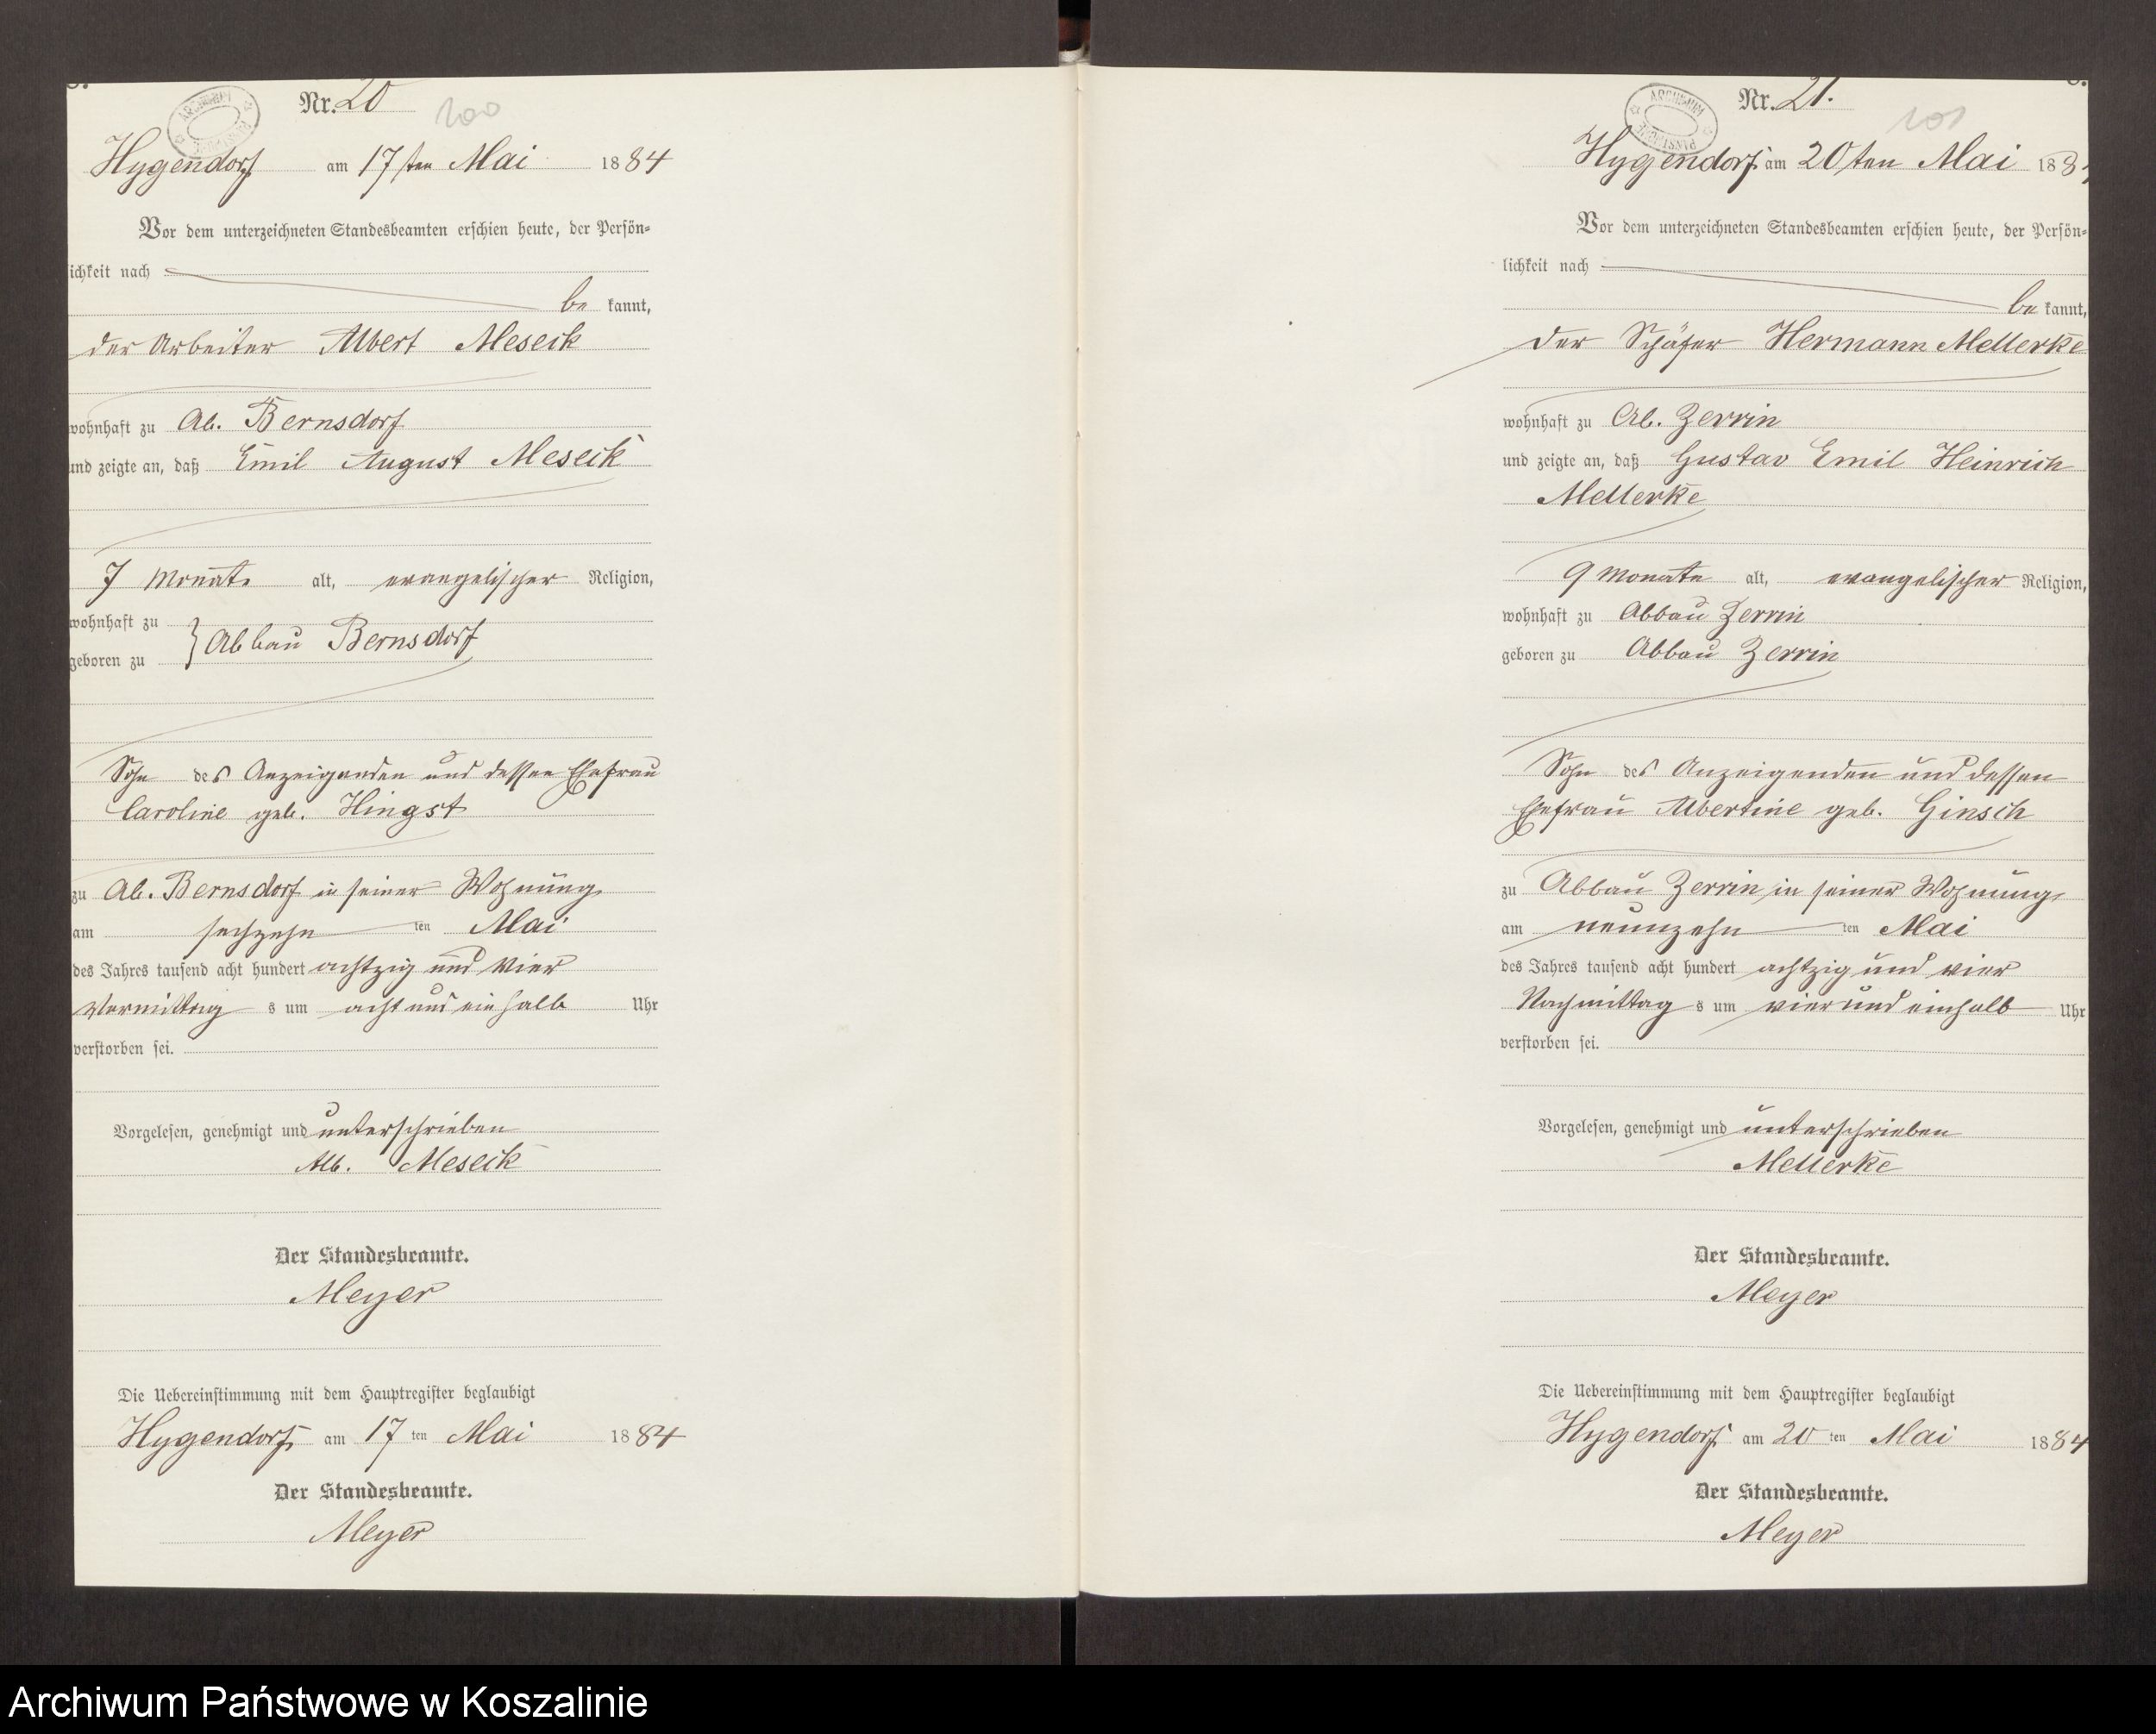 Nr. 20
200
Hygendorf am 17ten Mai 1884
Vor dem unterzeichneten Standesbeamten erschien heute, der Persön-
lichkeit nach
be kannt,
der Arbeiter Albert Meseck
wohnhaft zu Ab. Bernsdorf
und zeigte an, daß Emil August Meseck
7 Monate alt, evangelischer Religion,
wohnhaft zu
geboren zu } Abbau Bernsdorf
Sohn des Anzeigenden und dessen Ehefrau
Caroline geb. Hingst
zu Ab. Bernsdorf in seiner Wohnung
am sechzehn ten Mai
des Jahres tausend acht hundert achtzig und vier
Vormittag s um acht und ein halb Uhr
verstorben sei.
Vorgelesen, genehmigt und unterschrieben
Alb. Meseck
Der Standesbeamte.
Meyer
Die Uebereinstimmung mit dem Hauptregister beglaubigt
Hygendorf, am 17 ten Mai 1884
Der Standesbeamte.
Meyer
Nr. 21.
201
Hygendorf am 20ten Mai 188
Vor dem unterzeichneten Standesbeamten erschien heute, der Persön-
lichkeit nach
be kannt,
der Schäfer Hermann Mellerke
wohnhaft zu Ab. Zerrin
und zeigte an, daß Gustav Emil Heinrich
Mellerke
9 Monate alt, evangelischer Religion,
wohnhaft zu Abbau Zerrin
geboren zu Abbau Zerrin
Sohn des Anzeigenden und dessen
Ehefrau Albertine geb. Ginsch
zu Abbau Zerrin in seiner Wohnung
am neunzehn ten Mai
des Jahres tausend acht hundert achtzig und vier
Nachmittag s um vier und einhalb Uhr
verstorben sei.
Vorgelesen, genehmigt und unterschrieben
Mellerke
Der Standesbeamte.
Meyer
Die Uebereinstimmung mit dem Hauptregister beglaubigt
Hygendorf am 20 ten Mai 1884
Der Standesbeamte.
Meyer
Archiwum Państwowe w Koszalinie